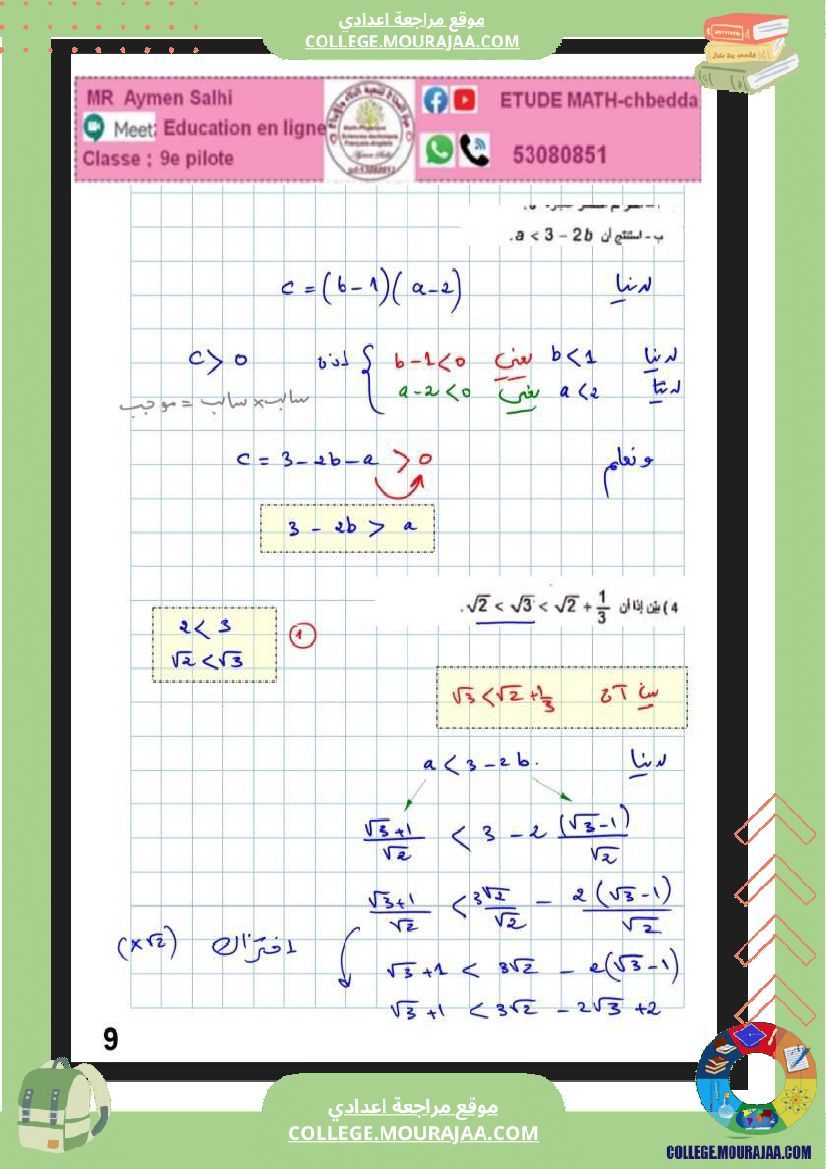 موقع مراجعة اعدادي
COLLEGE.MOURAJAA.COM
MR Aymen Salhi
Meet: Education en ligne
Classe : 9e pilote
ETUDE MATH-chbedda
53080851
ب - استنتج أن a < 3 − 2b.
لدينا c = (b − 1)(a − 2)
لدينا b < 1 يعني b − 1 < 0
لدينا a < 2 يعني a − 2 < 0
اذن c > 0
سالب × سالب = موجب
و نعلم c = 3 − 2b − a > 0
3 − 2b > a
4 ) بيّن إذا أن √2 < √3 < √2 + 1/3.
① 2 < 3
√2 < √3
√3 < √2 + 1/3
لدينا a < 3 − 2b.
(√3 + 1)/√2 < 3 − 2 (√3 − 1)/√2
(√3 + 1)/√2 < 3√2/√2 − 2(√3 − 1)/√2
اختزال (×√2)
√3 + 1 < 3√2 − 2(√3 − 1)
√3 + 1 < 3√2 − 2√3 + 2
9
موقع مراجعة اعدادي
COLLEGE.MOURAJAA.COM
COLLEGE.MOURAJAA.COM